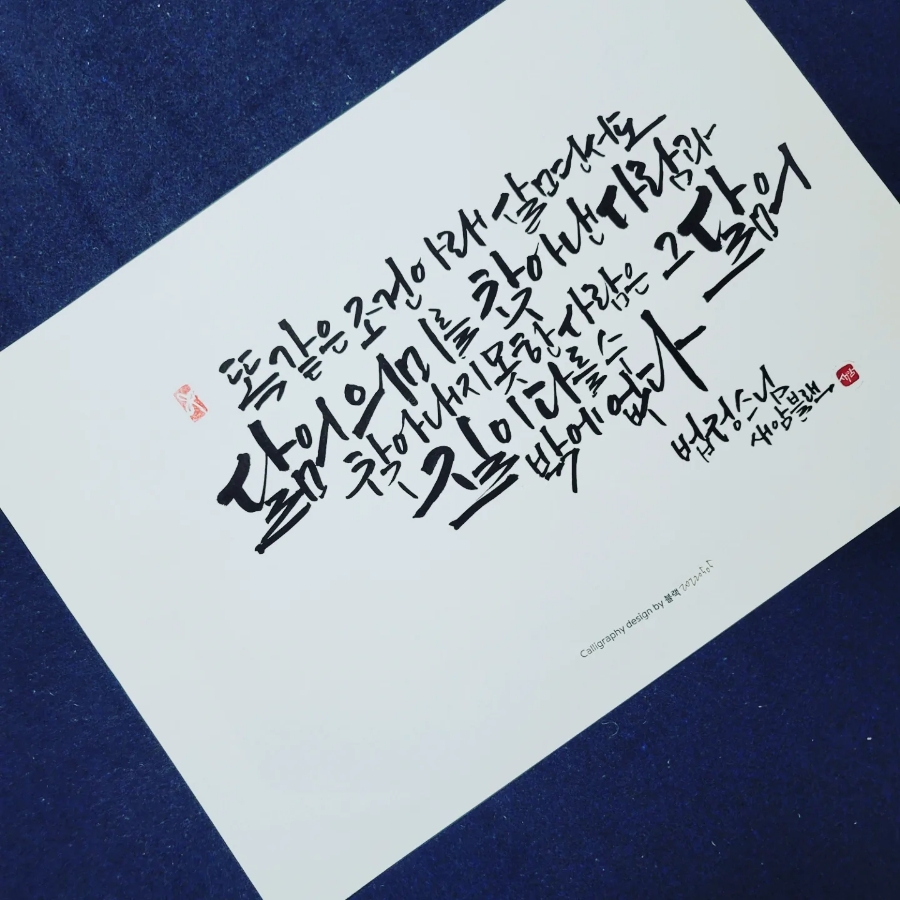 똑같은 조건 아래 살면서도
삶의 의미를 찾아낸 사람과
찾아내지 못한 사람은 그 삶의
질이 다를 수
밖에 없다
법정스님
새암블랙
Calligraphy design by 블랙